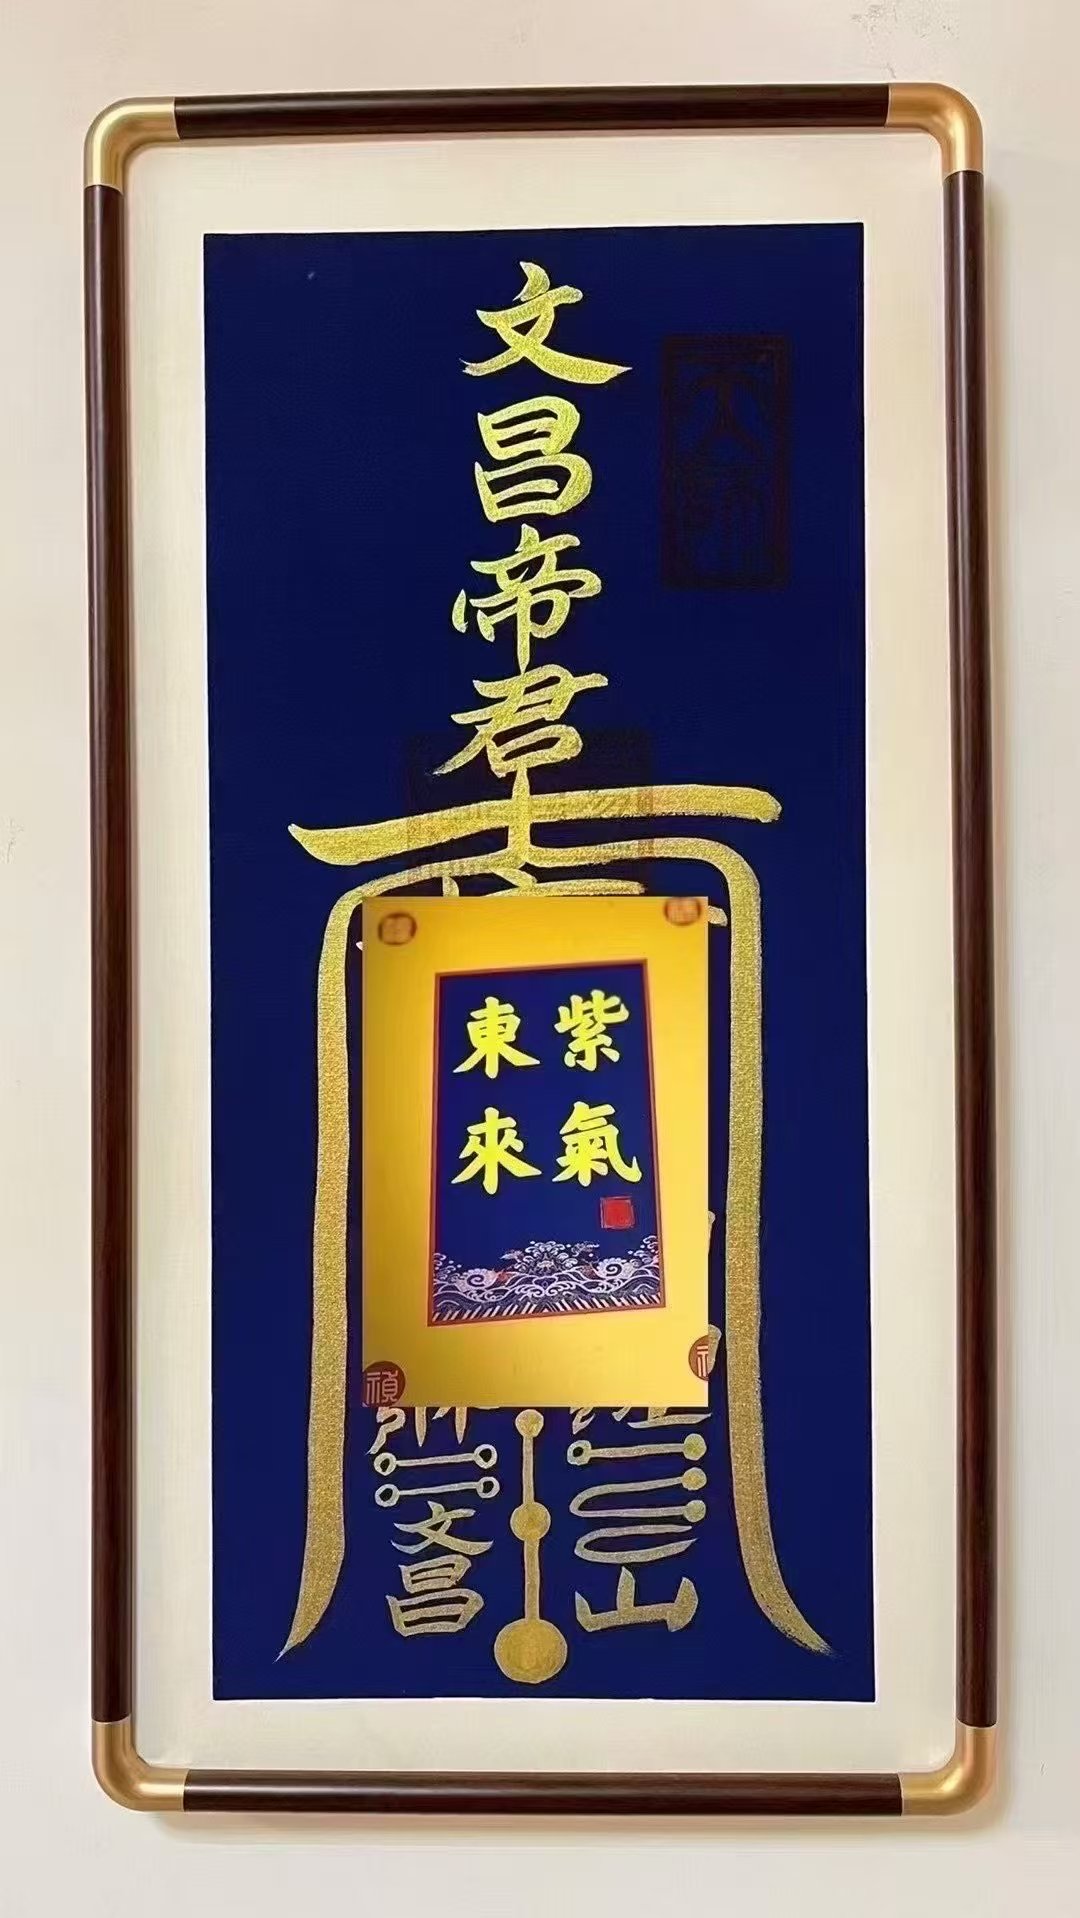 文昌帝君
紫氣
東來
文昌
山
禎